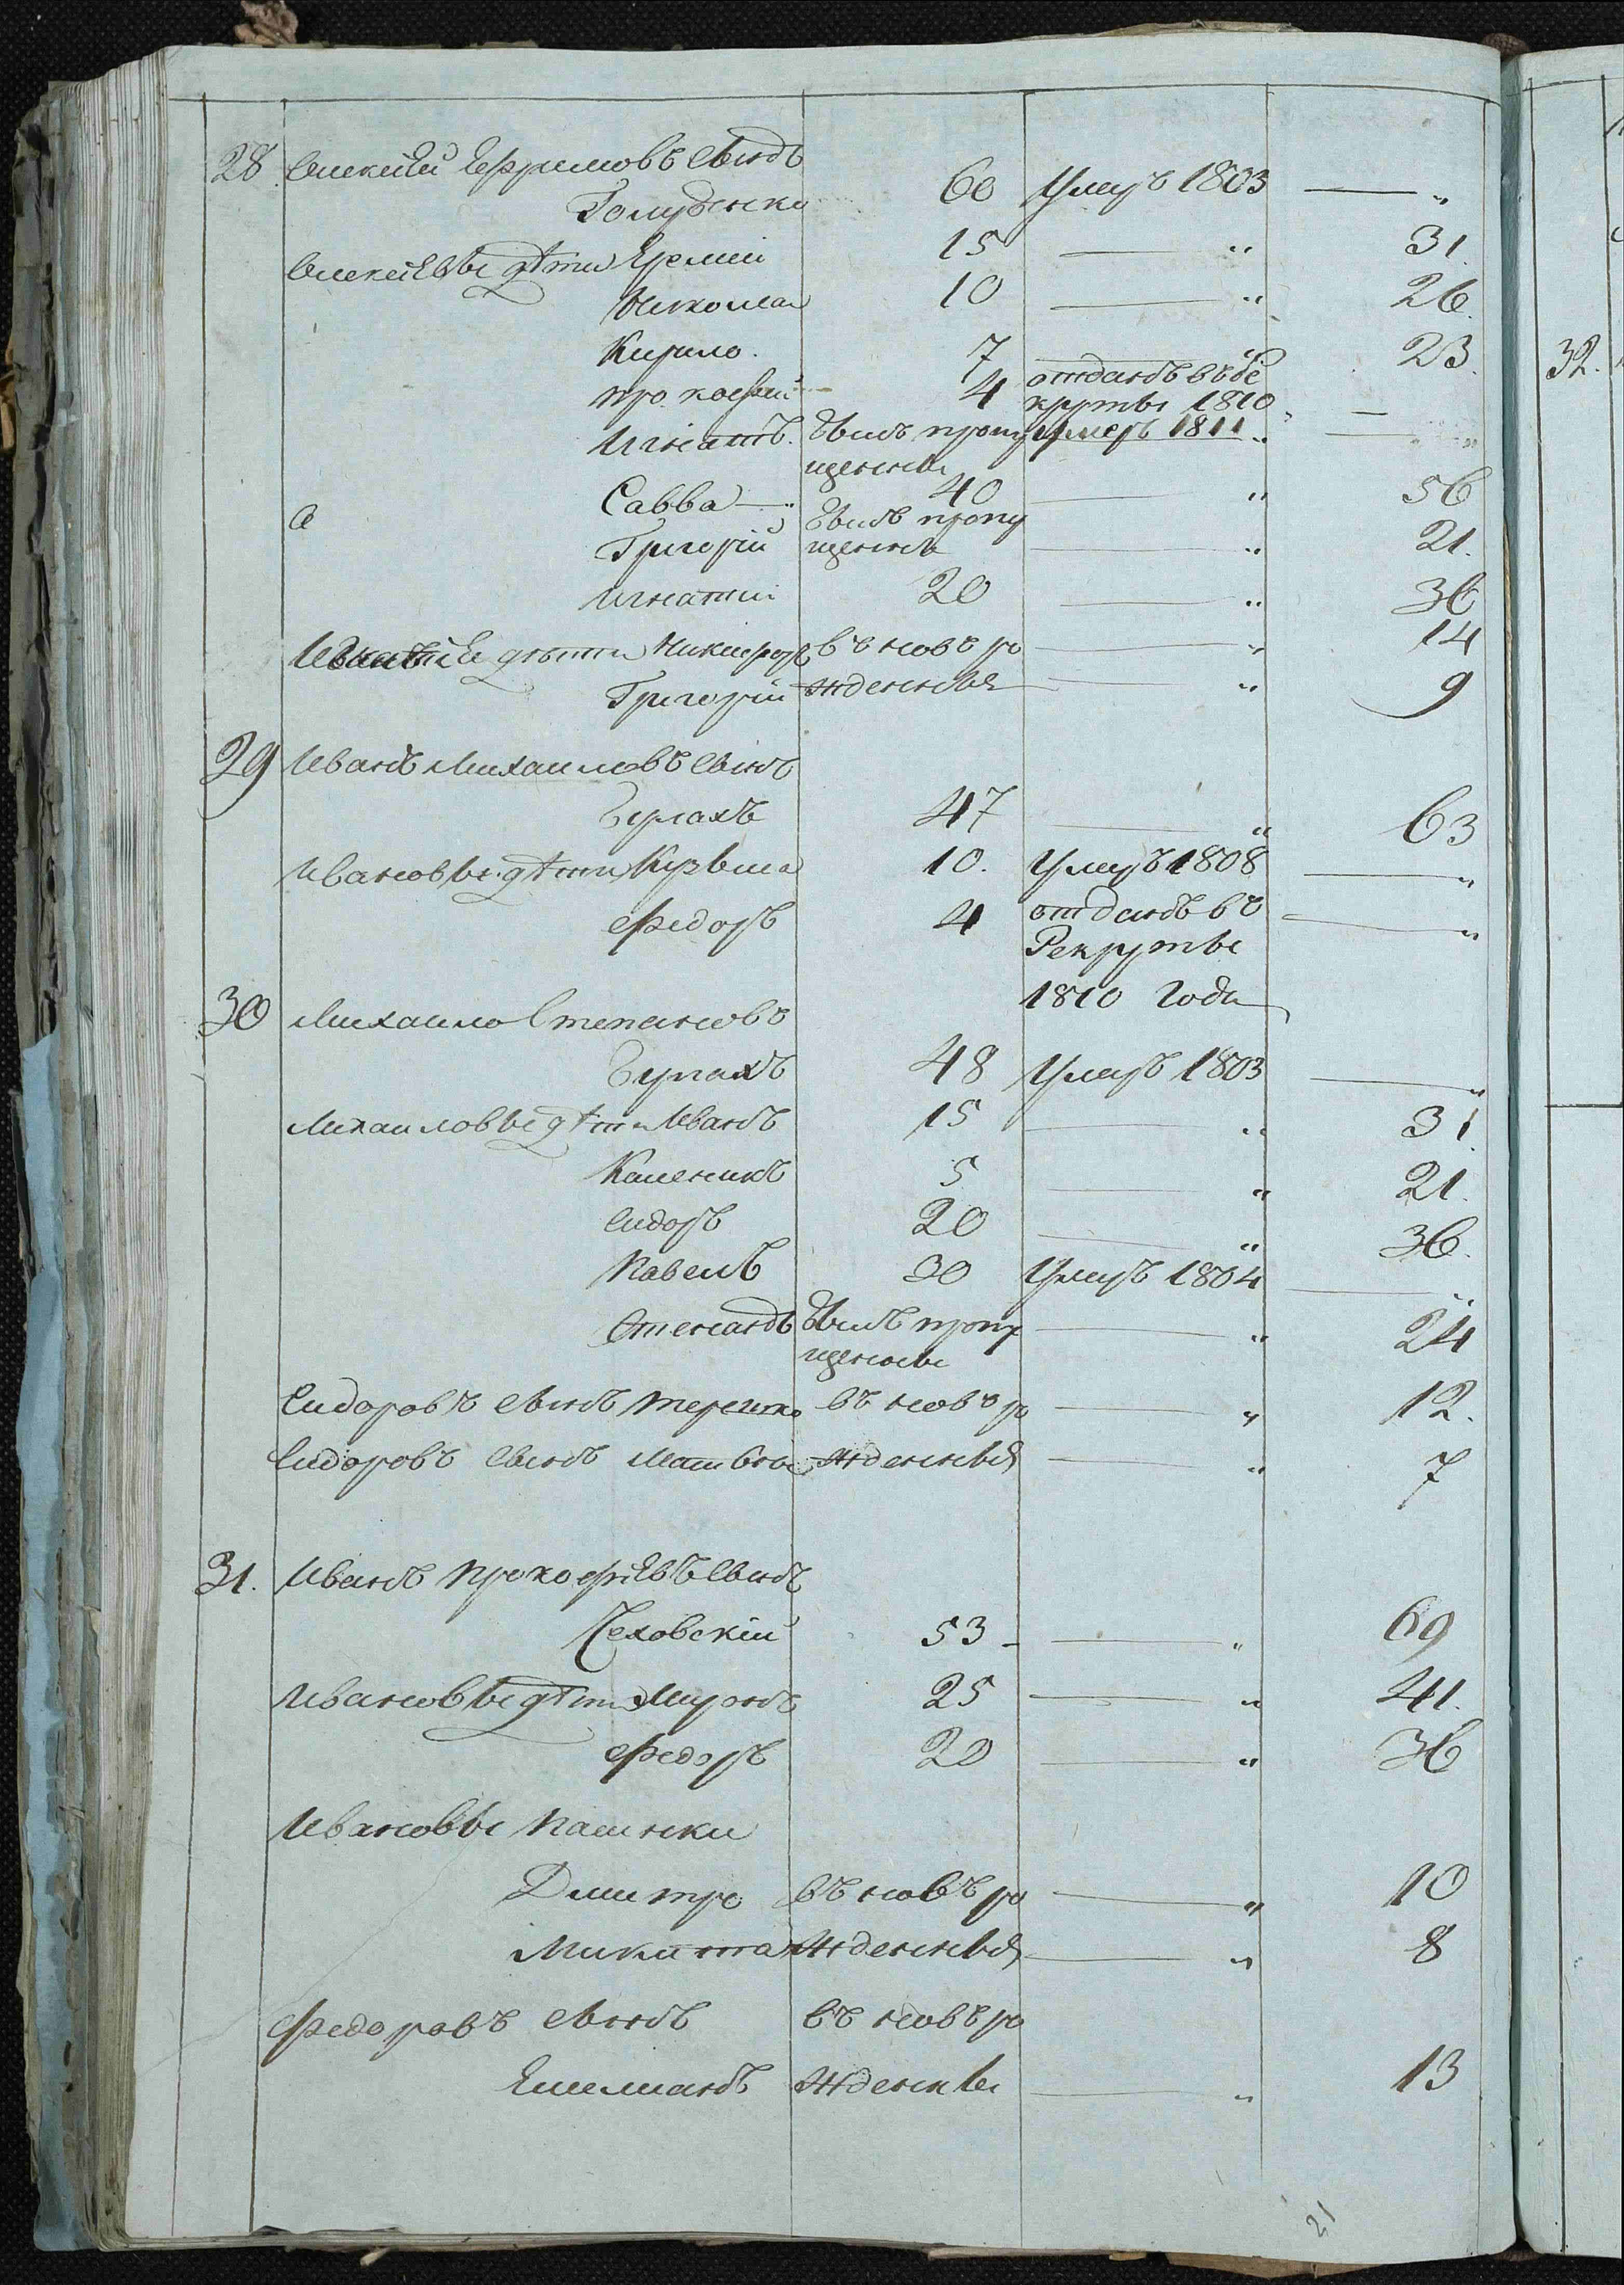 28 Олексѣй Ефримовъ Сынъ
Голубенко 60 Умеръ 1803 — „
Олексѣевы дѣти Еремій 15 — „ 31.
Николай 10 — „ 26.
Кирило. 7 — „ 23.
Прокофій 4 отданъ въ Ре
круты 1810 —
Игнатъ. былъ пропу Умеръ 1811 „ —
щенны
Савва — 40 — „ 56
а былъ пропу
Григорій щенны — „ 21.
Игнатій 20 — „ 36
дѣти Никифоръ въ новъ ро — „ 14
Григорій жденныя — „ 9
29 Иванъ Михаиловъ Сынъ
Бурлахъ 47 — „ 63
Ивановы дѣти Кузьма 10. Умеръ 1808 — „
Федоръ 4 отданъ въ — „
Рекруты
1810 Года
30 Михаило Степановъ
Бурлахъ 48 Умеръ 1803 — „
Михаиловы дѣти Иванъ 15 — „ 31.
Каленикъ 5 — „ 21.
Сидоръ 20 — „ 36.
Павелъ 30 Умеръ 1804 — „
Степанъ былъ пропу — „ 24
щенны
Сидоровъ Сынъ Терешко въ новъ ро — „ 12.
Сидоровъ Сынъ Матвѣй жденныя — „ 7
31. Иванъ Прокофѣевъ Сынъ
Чеховскій 53 — „ 69
Ивановы дѣти Миронъ 25 — „ 41.
Федоръ 20 — „ 36
Ивановы Пасынки
Дмитро въ новъ ро — „ 10
Микита жденныя — „ 8
Федоровъ Сынъ въ новъ ро
Емелианъ жденны — „ 13
21
32.